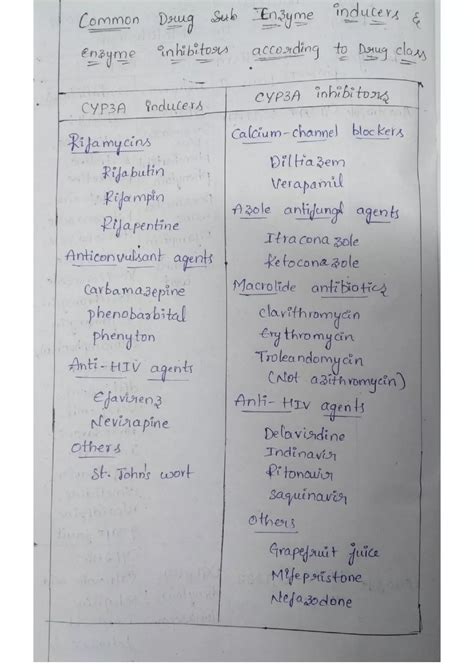 Common Drug Sub Enzyme inducers &
enzyme inhibitors according to Drug class
CYP3A inducers
Rifamycins
Rifabutin
Rifampin
Rifapentine
Anticonvulsant agents
Carbamazepine
phenobarbital
phenyton
Anti-HIV agents
Efavirenz
Nevirapine
Others
St. John's wort
CYP3A inhibitors
Calcium-channel blockers
Diltiazem
Verapamil
Azole antifungl agents
Itraconazole
Ketoconazole
Macrolide antibiotics
clarithromycin
Erythromycin
Troleandomycin
(Not azithromycin)
Anti-HIV agents
Delavirdine
Indinavir
Ritonavir
Saquinavir
Others
Grapefruit juice
Mifepristone
Nefazodone